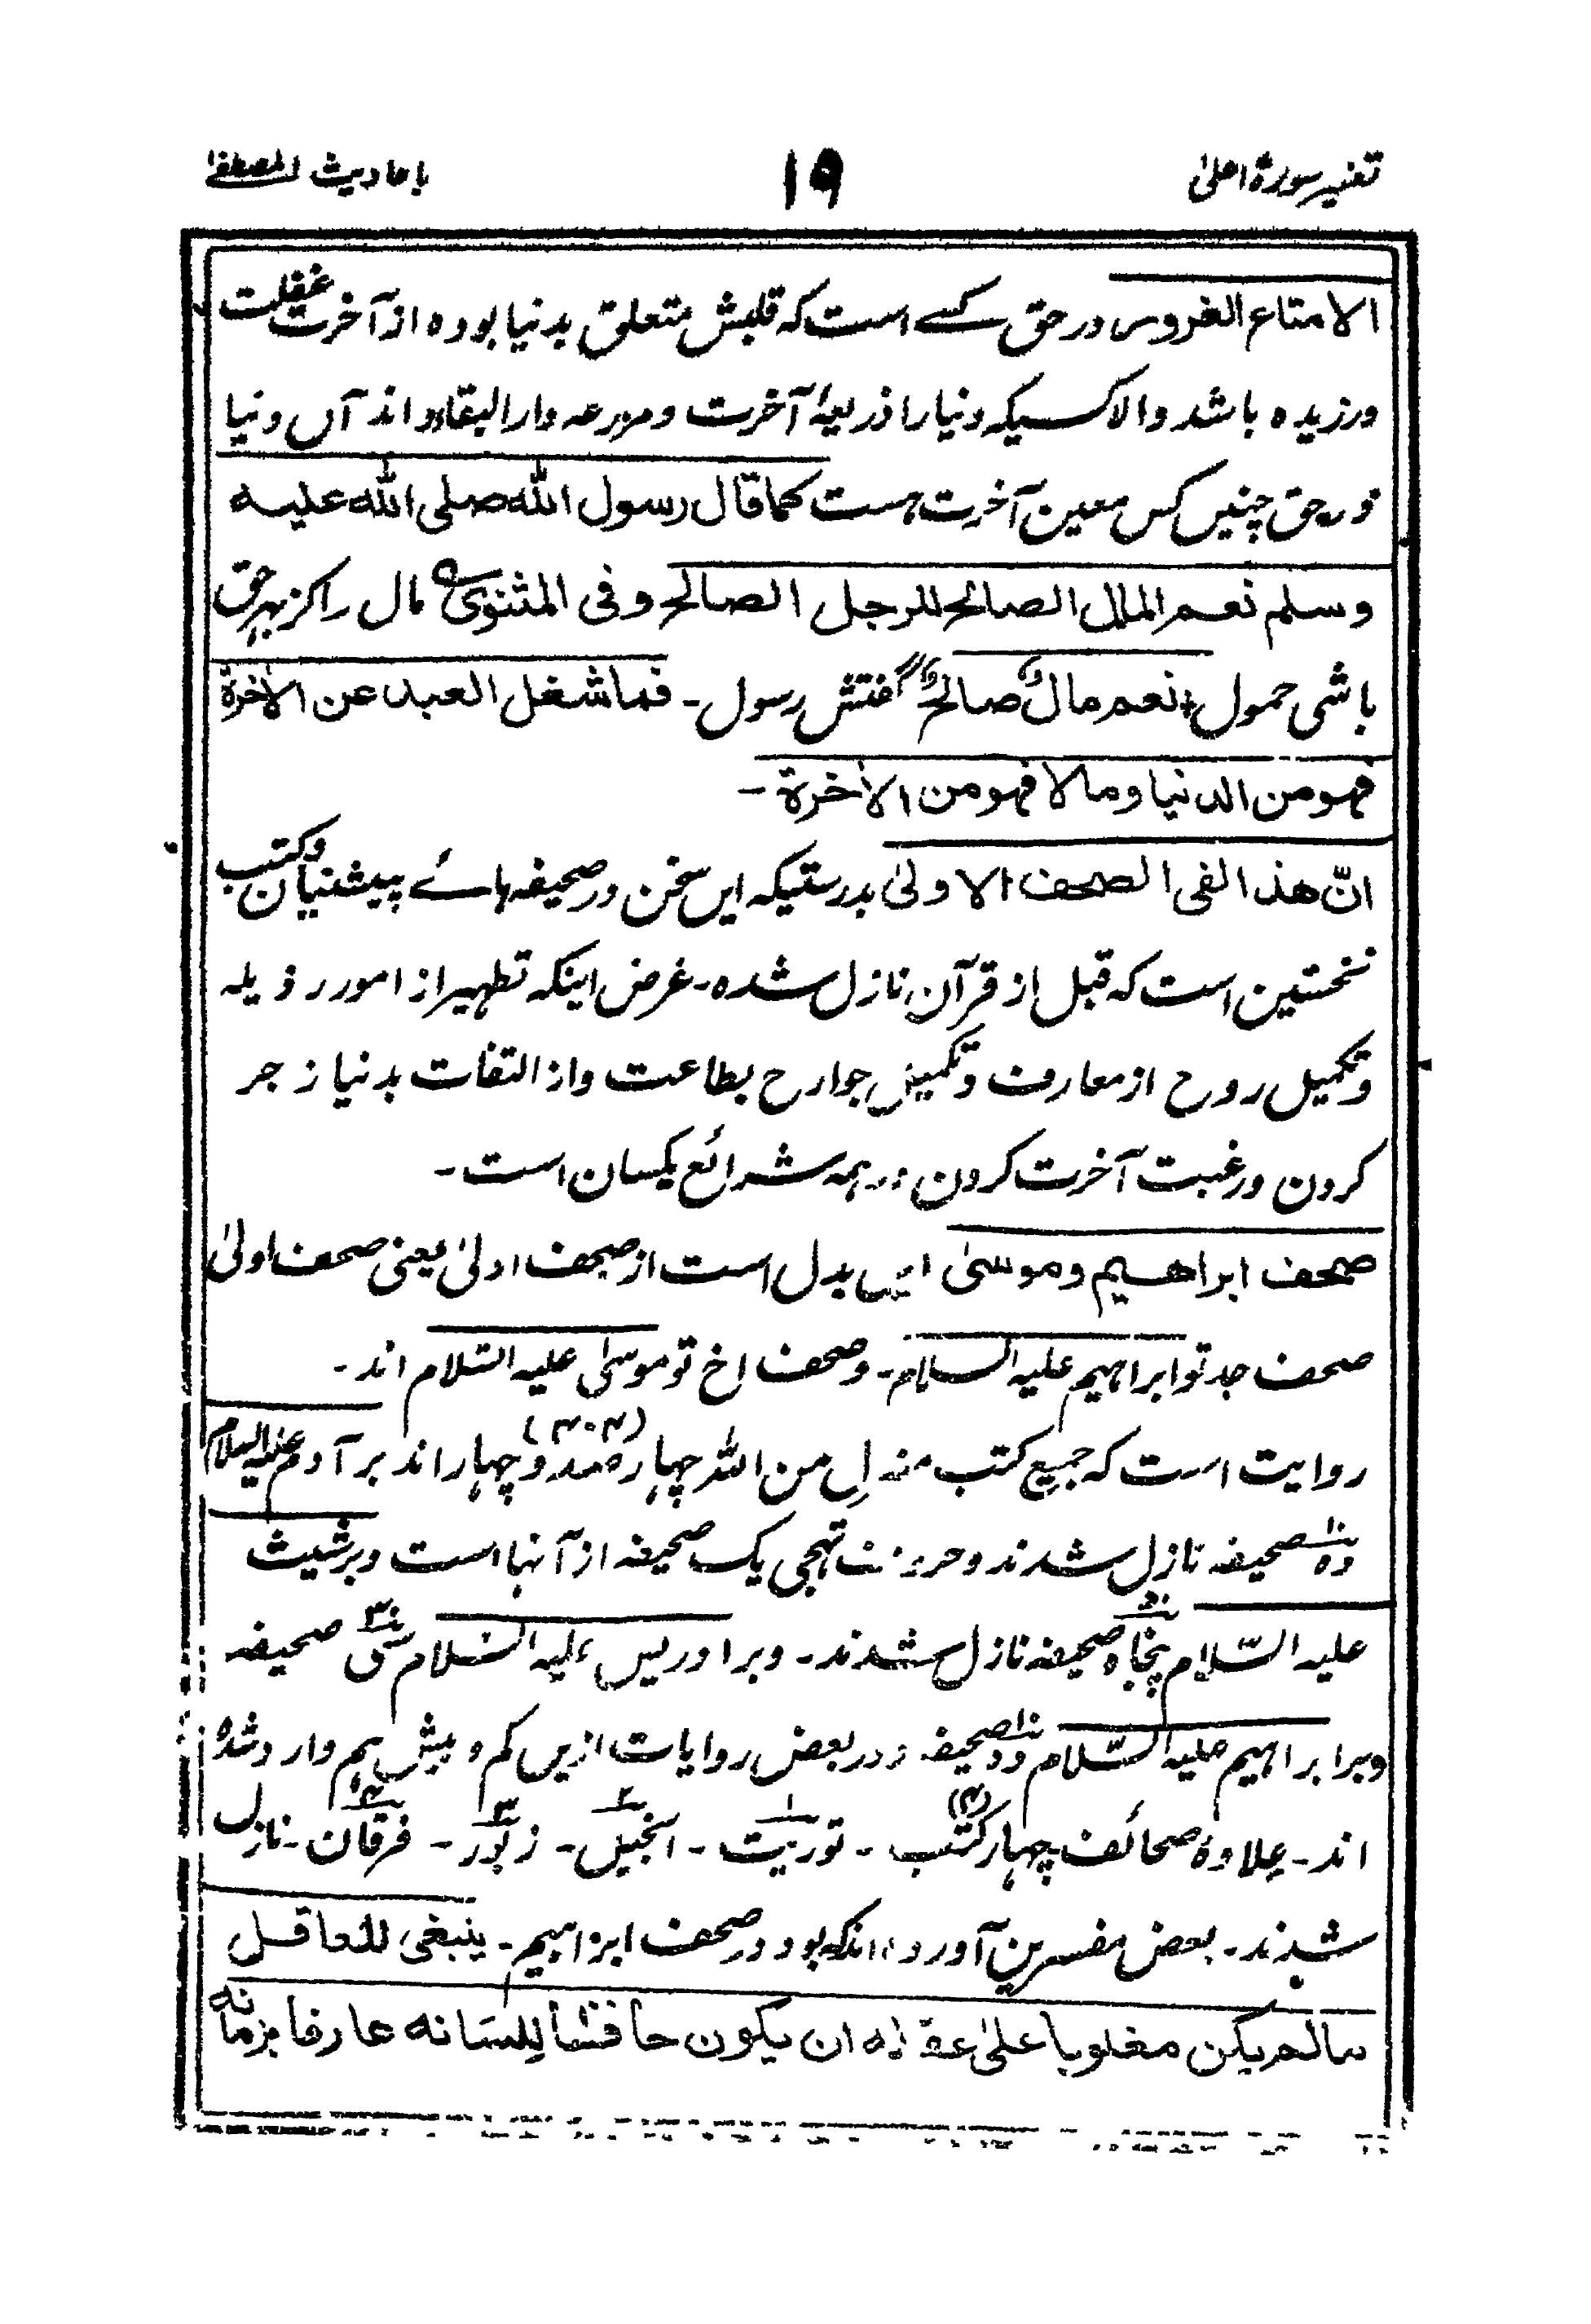 تفسیر سورۂ اعلیٰ
۱۹
باحادیث المصطفےٰ
الا متاع الغرور در حق کسے است کہ قلبش متعلق بدنیا بودہ از آخرت غفلت
ورزیدہ باشد والا کسیکہ دنیا را ذریعۂ آخرت و مزرعہ دار البقاء داند آں دنیا
در حق چنیں کس معین آخرت ہست کما قال رسول اللہ صلی اللہ علیہ
وسلم نعم المال الصالح للرجل الصالح وفی المثنوی مال را کز بہر حق
باشی حمول نعم مالٌ صالحٌ گفتش رسول۔ فما شغل العبد عن الاٰخرۃ
فهو من الدنیا وما لا فهو من الاٰخرۃ۔
انّ هذا لفی الصحف الاولیٰ بدرستیکہ ایں سخن در صحیفہ ہائے پیشنیان و کتب
نخستین است کہ قبل از قرآن نازل شدہ۔ غرض اینکہ تطہیر از امور رذیلہ
و تکمیل روح از معارف و تکمیل جوارح بطاعت و از التفات بدنیا زجر
کردن و رغبت آخرت کردن در ہمہ شرائع یکسان است۔
صحف ابراهیم وموسیٰ ایں بدل است از صحف اولیٰ یعنی صحف اولیٰ
صحف جد تو ابراہیم علیہ السلام۔ وصحف اخ تو موسیٰ علیہ السّلام اند۔
روایت است کہ جمیع کتب منزل من اللہ چہار صد و چہار اند (۴۰۴) بر آدم علیہ السلام
دہ ۱۰ صحیفہ نازل شدند و حروف تہجی یک صحیفہ از آنہا است و بر شیث
علیہ السّلام پنجاہ ۵۰ صحیفہ نازل شدند۔ و بر ادریس علیہ السّلام سی ۳۰ صحیفہ
و بر ابراہیم علیہ السّلام دہ ۱۰ صحیفہ و در بعض روایات ازیں کم و بیش ہم وارد شدہ
اند۔ علاوۂ صحائف چہار (۴) کتب۔ توریت ۱۔ انجیل ۲۔ زبور ۳۔ فرقان ۴۔ نازل
شدند۔ بعض مفسرین آوردہ اند کہ بود در صحف ابراہیم۔ ینبغی للعاقل
مالم یکن مغلوبا علیٰ عقلہ ان یکون حافظاً للسانه عارفا بزمانه